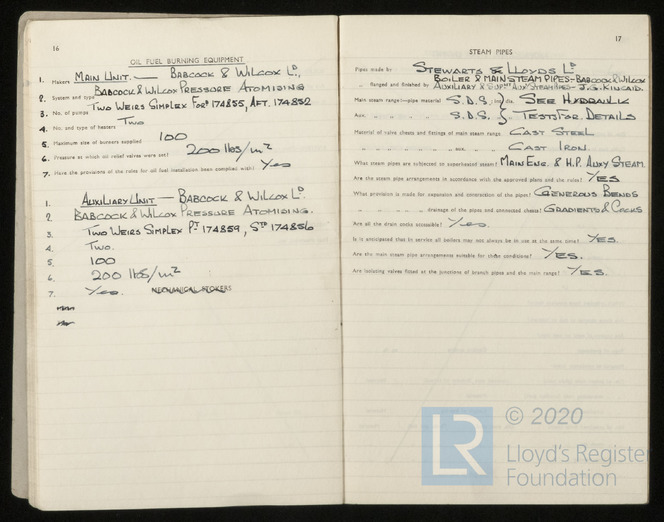 16
OIL FUEL BURNING EQUIPMENT
1. Makers MAIN UNIT. — BABCOCK & WILCOX LD.,
2. System and type BABCOCK & WILCOX PRESSURE ATOMISING
3. No. of pumps TWO WEIRS SIMPLEX FORD 174855, AFT. 174852
4. No. and type of heaters TWO
5. Maximum size of burners supplied 100
6. Pressure at which oil relief valves were set? 200 lbs/in2
7. Have the provisions of the rules for oil fuel installation been complied with? Yes
1. AUXILIARY UNIT — BABCOCK & WILCOX LD
2. BABCOCK & WILCOX PRESSURE ATOMISING.
3. TWO WEIRS SIMPLEX PT 174859, STD 174856
4. TWO.
5. 100
6. 200 lbs/in2
7. Yes. MECHANICAL STOKERS
17
STEAM PIPES
Pipes made by STEWARTS & LLOYDS LD
BOILER & MAIN STEAM PIPES - BABCOCK & WILCOX
" flanged and finished by AUXILIARY & SUPHT AUXY STEAM PIPES - J.G. KINCAID.
Main steam range:—pipe material S.D.S. SEE HYDRAULIC
Aux. S.D.S. TESTS FOR DETAILS
Material of valve chests and fittings of main steam range CAST STEEL
" " " aux. " CAST IRON.
What steam pipes are subjected to superheated steam? MAIN ENG. & H.P. AUXY STEAM.
Are the steam pipe arrangements in accordance with the approved plans and the rules? YES
What provision is made for expansion and contraction of the pipes? GENEROUS BENDS
" " " " drainage of the pipes and connected chests? GRADIENTS & COCKS
Are all the drain cocks accessible? Yes.
Is it anticipated that in service all boilers may not always be in use at the same time? YES.
Are the main steam pipe arrangements suitable for these conditions? YES.
Are isolating valves fitted at the junctions of branch pipes and the main range? YES.
LR
© 2020
Lloyd's Register
Foundation